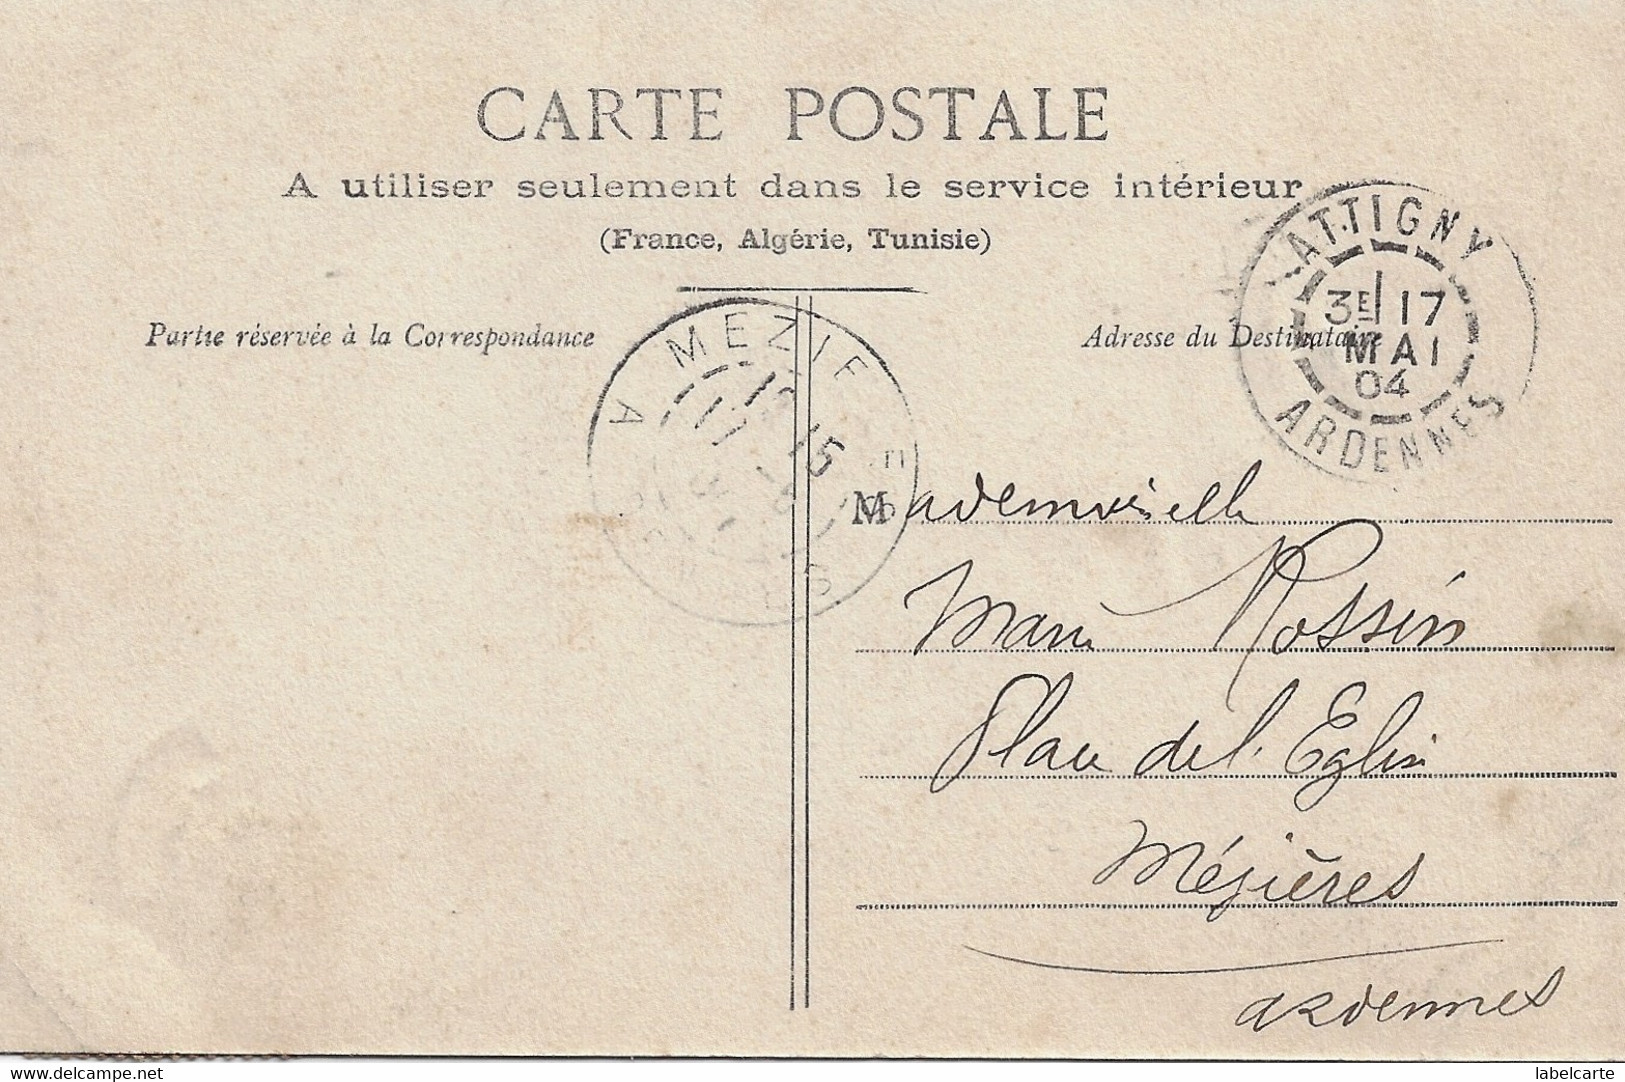 CARTE POSTALE
A utiliser seulement dans le service intérieur
(France, Algérie, Tunisie)
ATTIGNY
3E 17
MAI
04
ARDENNES
Partie réservée à la Correspondance
Adresse du Destinataire
MEZIE
15
Mademoiselle
Marie Rossin
Place de l'Eglise
Mézières
Ardennes
www.delcampe.net
labelcarte